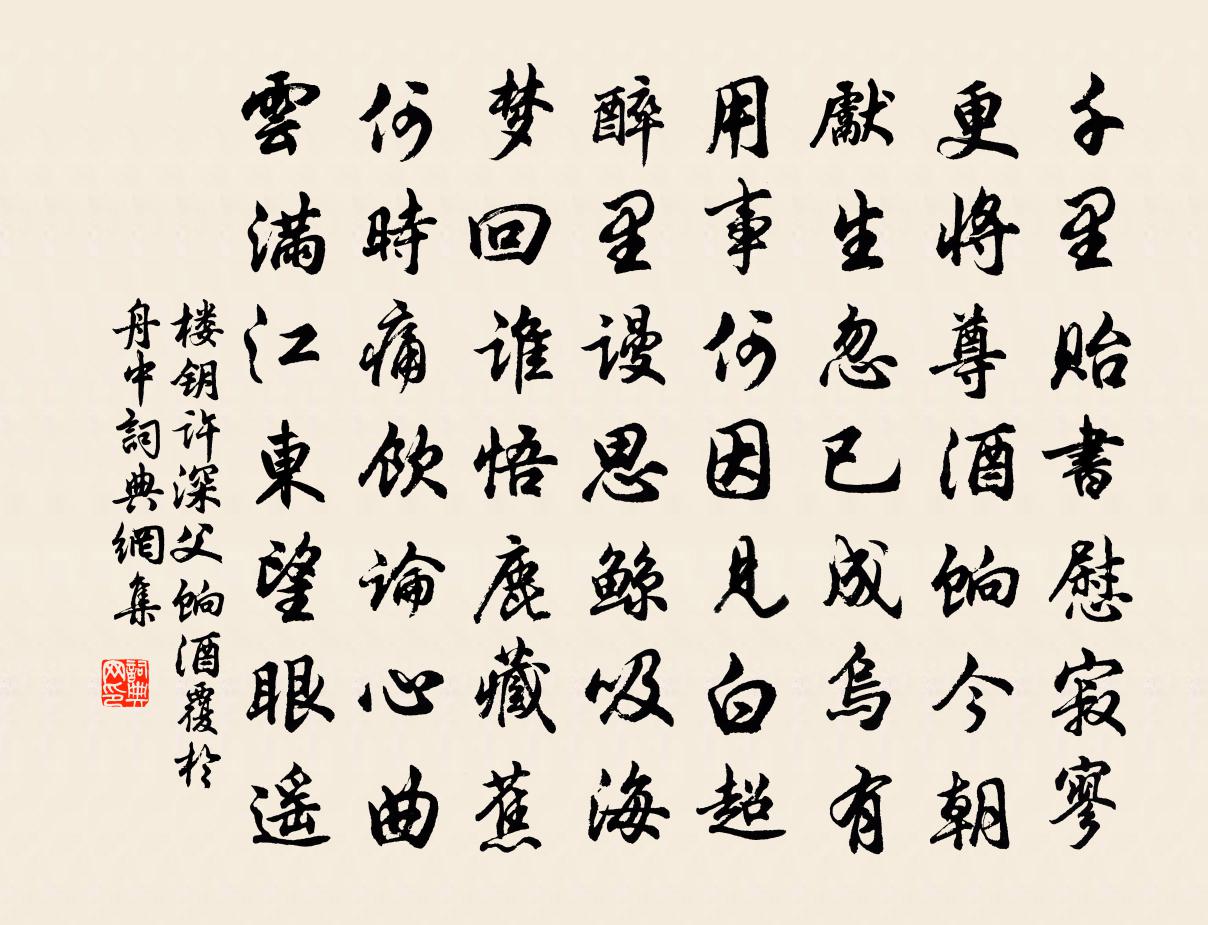 千里貽書慰寂寥
更將尊酒餉今朝
獻生忽已成烏有
用事何因見白超
醉里謾思鲸吸海
梦回誰悟鹿藏蕉
何時痛飲論心曲
雲滿江東望眼遥
楼钥许深父餉酒覆於
舟中詞典網集
詞典网印